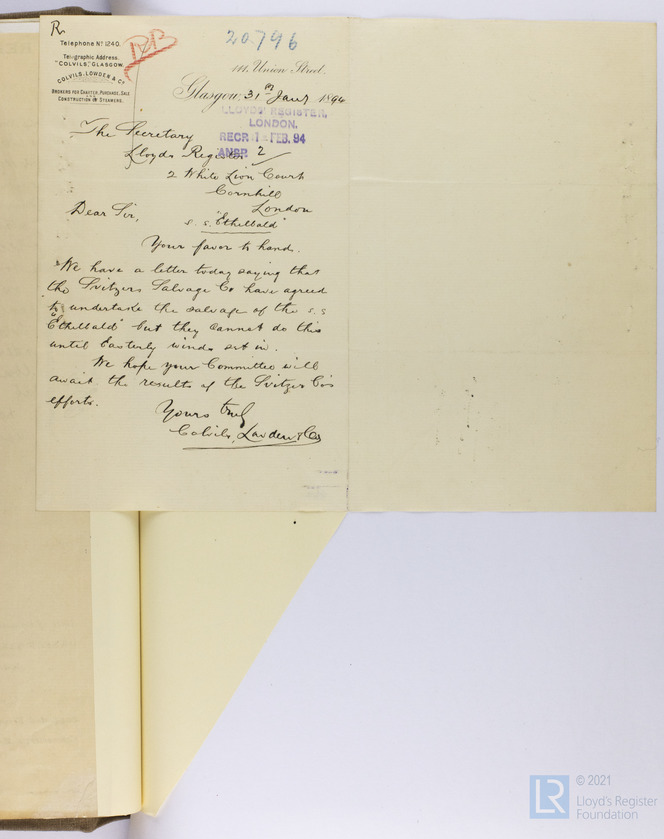 R
Telephone No 1240.
Telegraphic Address.
"COLVILS," GLASGOW.
COLVILS, LOWDEN & Co
BROKERS FOR CHARTER, PURCHASE, SALE
AND
CONSTRUCTION OF STEAMERS.
20796
111, Union Street,
Glasgow, 31st Jany 1894
LLOYDS' REGISTER,
LONDON.
RECD 1 FEB. 94
ANSD. 2
The Secretary
Lloyds Register
2 White Lion Court
Cornhill
London
Dear Sir,
s.s. "Ethelbald"
Your favor to hand.
We have a letter today saying that
the Svitzers Salvage Co have agreed
to undertake the salvage of the s.s
"Ethelbald" but they cannot do this
until Easterly winds set in.
We hope your Committee will
await the results of the Svitzer Co's
efforts.
Yours truly
Colvils, Lowden & Co
LR
© 2021
Lloyd's Register
Foundation